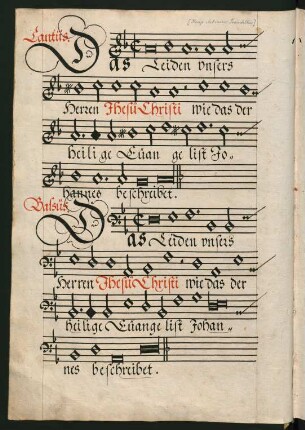 Cantus.
Das Leiden vnsers
Herren Jhesu Christi wie das der
heili ge Euan ge list Jo-
hannes beschreibet.
Bassus.
Das Leiden vnsers
Herren Jhesu Christi wie das der
heilige Euange list Johan=
nes beschreibet.